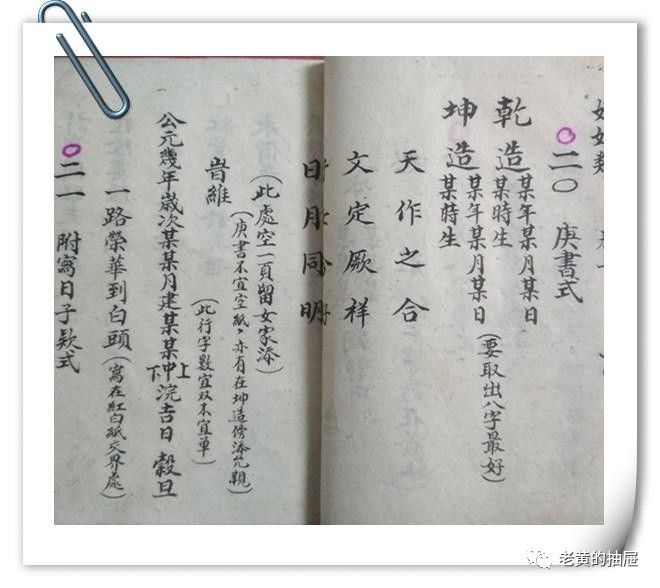 二〇 庚書式
乾造某年某月某日
某時生
坤造某年某月某日
某時生
(要取出八字最好)
天作之合
文定厥祥
日月同明
(此處空一頁留女家添)
(庚書不宜空紙,亦有在坤造傍添允親)
旹維
(此行字數宜双不宜单)
公元幾年歲次某某月建某某上中下浣吉日 穀旦
一路榮華到白頭(寫在紅白紙交界處)
二一 附寫日子欵式
老黄的抽屉